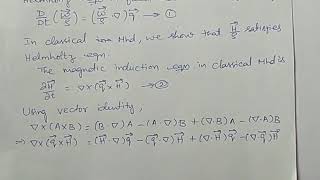 D/Dt (ω⃗/ρ) = (ω⃗/ρ · ∇) q⃗ → ①
In classical Mhd, we show that H⃗/ρ satisfies
Helmholtz eqn:
The magnetic induction eqn in classical Mhd is
∂H⃗/∂t = ∇×(q⃗×H⃗) → ②
Using vector identity,
∇×(A×B) = (B·∇)A − (A·∇)B + (∇·B)A − (∇·A)B
⇒ ∇×(q⃗×H⃗) = (H⃗·∇)q⃗ − (q⃗·∇)H⃗ + (∇·H⃗)q⃗ − (∇·q⃗)H⃗